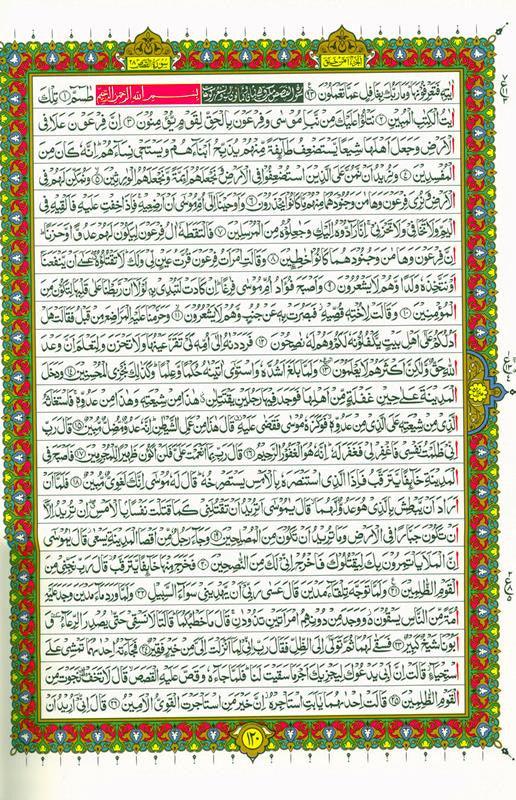 سورة القصص ٢٨
ايته فتعرفونها وما ربك بغافل عما تعملون ٩٣ بسم الله الرحمن الرحيم طسم ١ تلك
ايت الكتب المبين ٢ نتلوا عليك من نبا موسى وفرعون بالحق لقوم يؤمنون ٣ ان فرعون علا في
الارض وجعل اهلها شيعا يستضعف طايفة منهم يذبح ابناءهم ويستحي نساءهم انه كان من
المفسدين ٤ ونريد ان نمن على الذين استضعفوا في الارض ونجعلهم ائمة ونجعلهم الورثين ٥ ونمكن لهم في
الارض ونري فرعون وهامن وجنودهما منهم ما كانوا يحذرون ٦ واوحينا الى ام موسى ان ارضعيه فاذا خفت عليه فالقيه في
اليم ولا تخافي ولا تحزني انا رادوه اليك وجاعلوه من المرسلين ٧ فالتقطه ال فرعون ليكون لهم عدوا وحزنا
ان فرعون وهامن وجنودهما كانوا خطين ٨ وقالت امرات فرعون قرت عين لي ولك لا تقتلوه عسى ان ينفعنا
او نتخذه ولدا وهم لا يشعرون ٩ واصبح فؤاد ام موسى فرغا ان كادت لتبدي به لولا ان ربطنا على قلبها لتكون من
المؤمنين ١٠ وقالت لاخته قصيه فبصرت به عن جنب وهم لا يشعرون ١١ وحرمنا عليه المراضع من قبل فقالت هل
ادلكم على اهل بيت يكفلونه لكم وهم له نصحون ١٢ فرددنه الى امه كي تقر عينها ولا تحزن ولتعلم ان وعد
الله حق ولكن اكثرهم لا يعلمون ١٣ ولما بلغ اشده واستوى اتينه حكما وعلما وكذلك نجزي المحسنين ١٤ ودخل
المدينة على حين غفلة من اهلها فوجد فيها رجلين يقتتلان هذا من شيعته وهذا من عدوه فاستغثه
الذي من شيعته على الذي من عدوه فوكزه موسى فقضى عليه قال هذا من عمل الشيطن انه عدو مضل مبين ١٥ قال رب
اني ظلمت نفسي فاغفر لي فغفر له انه هو الغفور الرحيم ١٦ قال رب بما انعمت علي فلن اكون ظهيرا للمجرمين ١٧ فاصبح في
المدينة خايفا يترقب فاذا الذي استنصره بالامس يستصرخه قال له موسى انك لغوي مبين ١٨ فلما ان
اراد ان يبطش بالذي هو عدو لهما قال يموسى اتريد ان تقتلني كما قتلت نفسا بالامس ان تريد الا
ان تكون جبارا في الارض وما تريد ان تكون من المصلحين ١٩ وجاء رجل من اقصا المدينة يسعى قال يموسى
ان الملا ياتمرون بك ليقتلوك فاخرج اني لك من النصحين ٢٠ فخرج منها خايفا يترقب قال رب نجني من
القوم الظلمين ٢١ ولما توجه تلقاء مدين قال عسى ربي ان يهديني سواء السبيل ٢٢ ولما ورد ماء مدين وجد عليه
امة من الناس يسقون ووجد من دونهم امراتين تذودان قال ما خطبكما قالتا لا نسقي حتى يصدر الرعاء و
ابونا شيخ كبير ٢٣ فسقى لهما ثم تولى الى الظل فقال رب اني لما انزلت الي من خير فقير ٢٤ فجاءته احدىهما تمشي على
استحياء قالت ان ابي يدعوك ليجزيك اجر ما سقيت لنا فلما جاءه وقص عليه القصص قال لا تخف نجوت من
القوم الظلمين ٢٥ قالت احدىهما يابت استاجره ان خير من استاجرت القوي الامين ٢٦ قال اني اريد ان